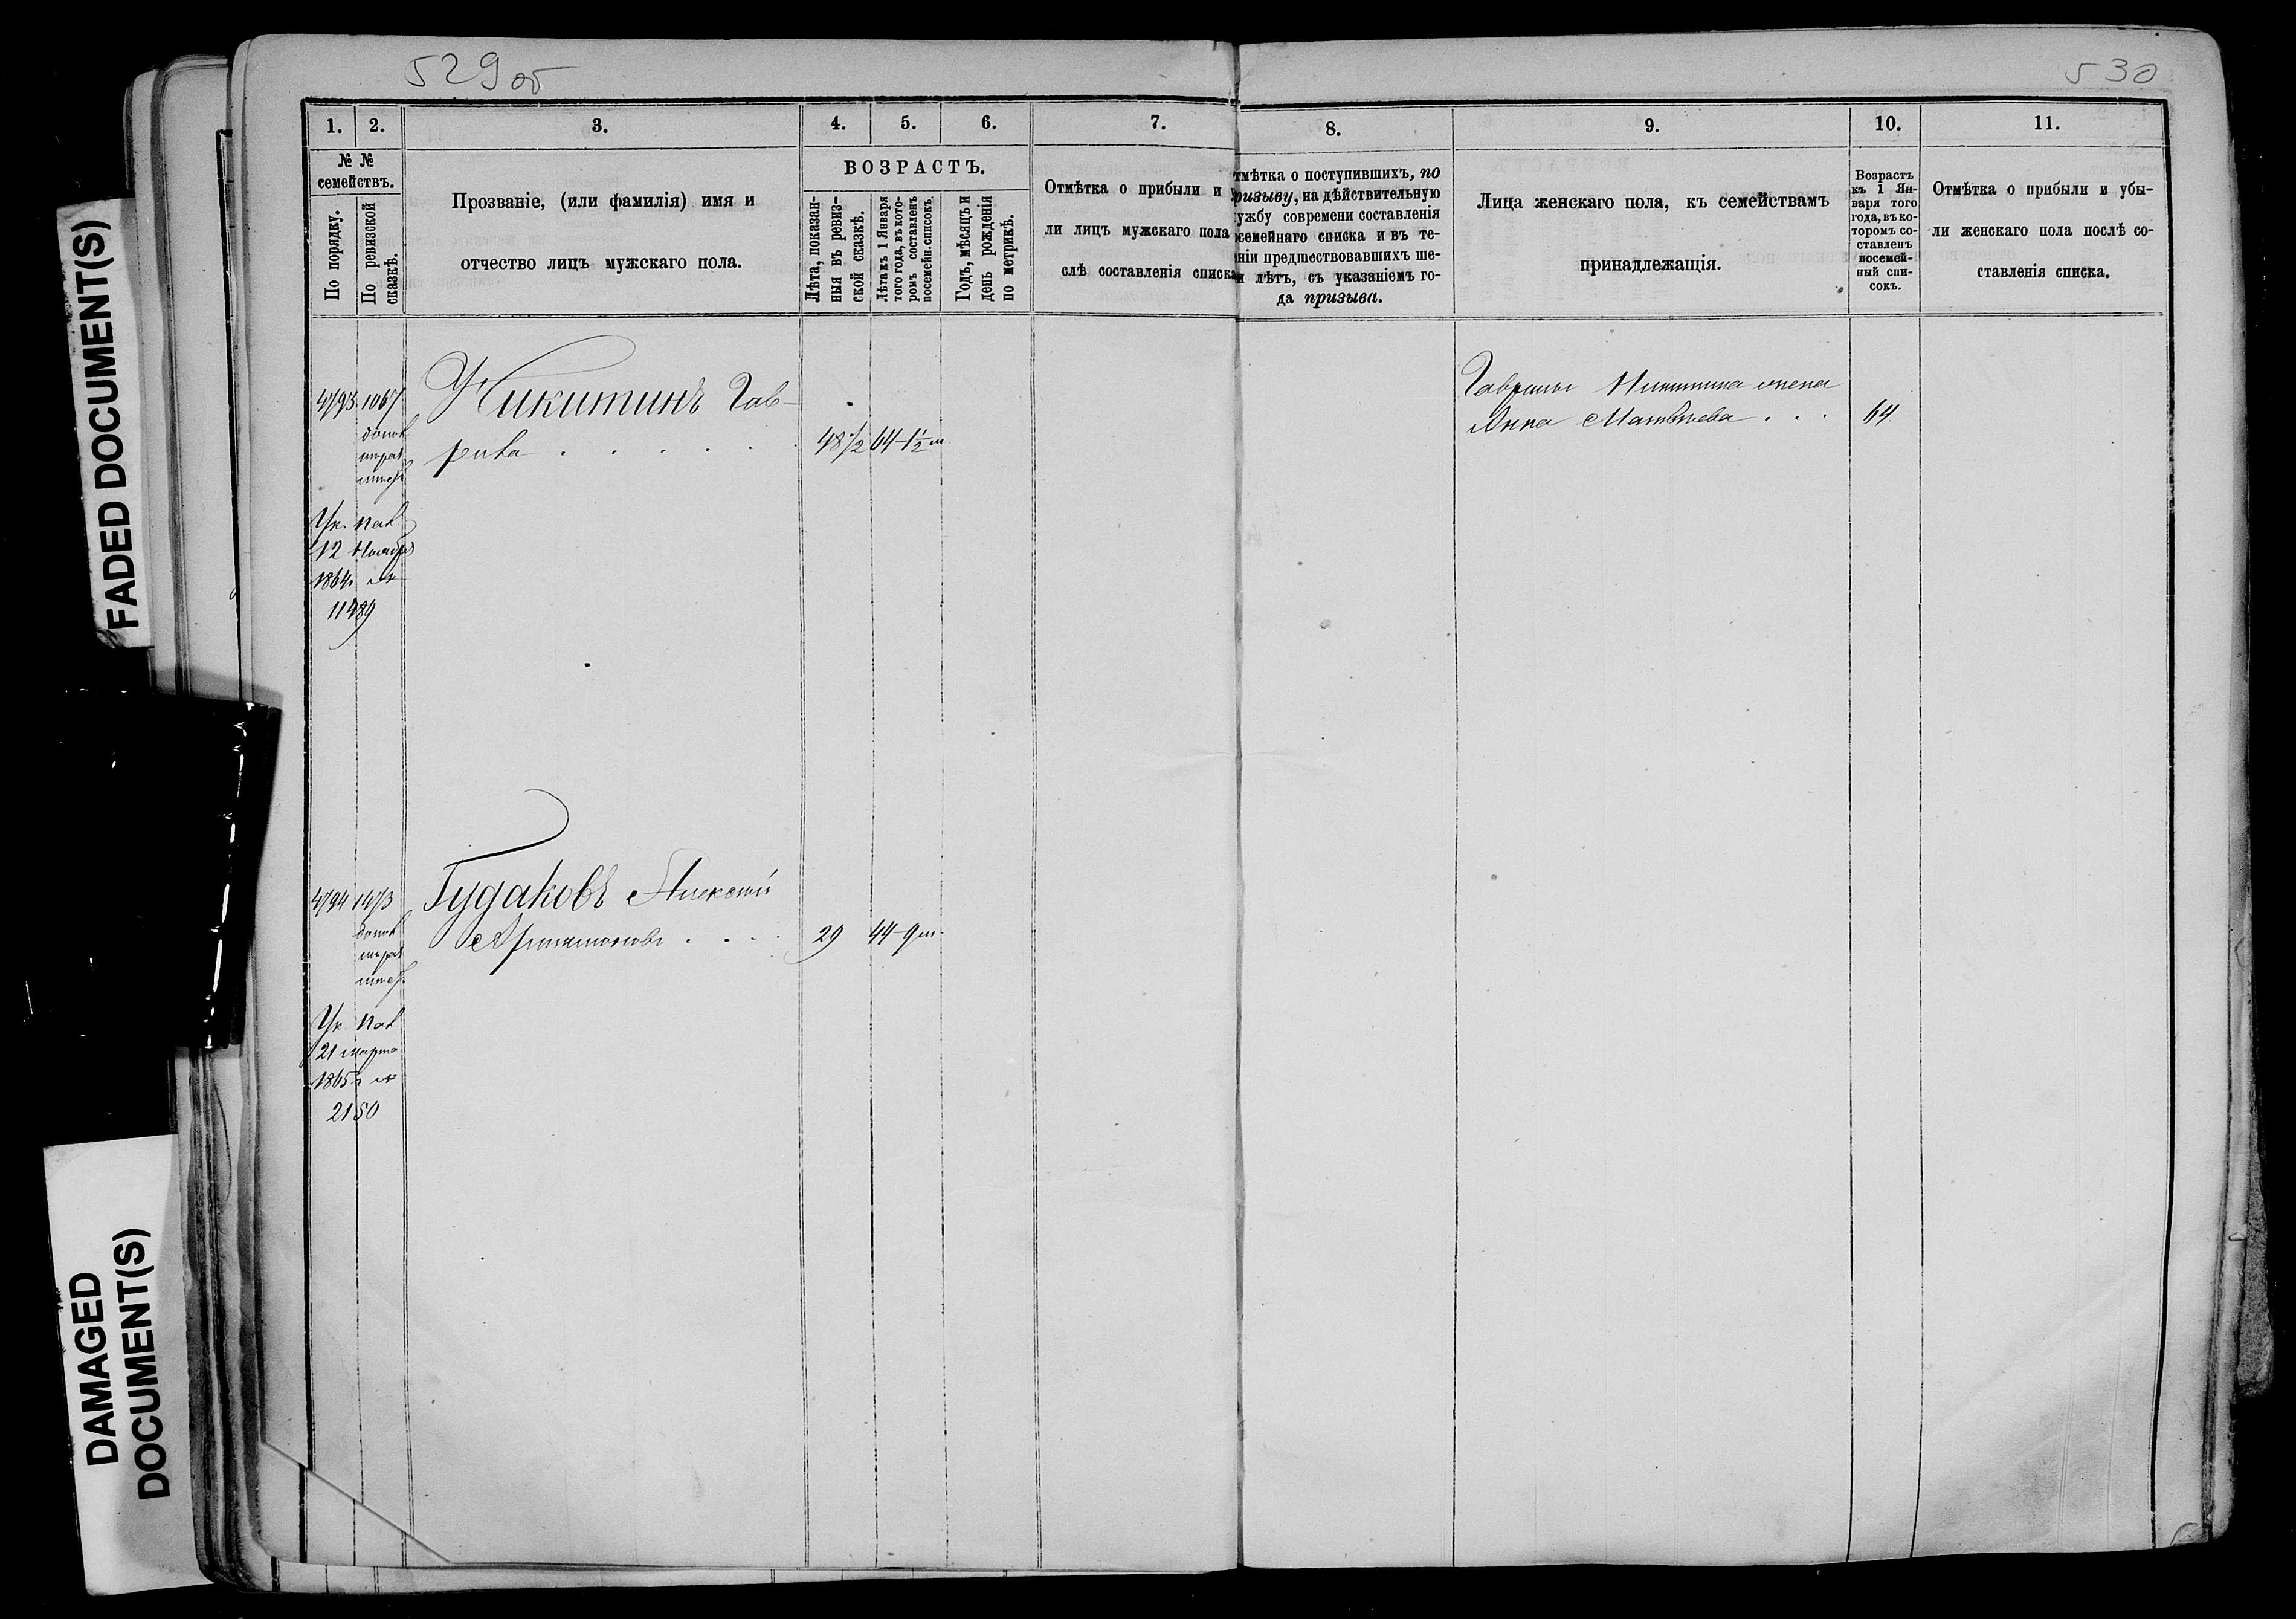 529 об
530
FADED DOCUMENT(S)
DAMAGED
DOCUMENT(S)
1.
2.
3.
4.
5.
6.
7.
№ №
семействъ.
По порядку.
По ревизской
сказкѣ.
Прозваніе, (или фамилія) имя и
отчество лицъ мужскаго пола.
ВОЗРАСТЪ.
Лѣта, показан-
ныя въ ревиз-
ской сказкѣ.
Лѣта къ 1 Января
того года, въ кото-
ромъ составленъ
посемейн. списокъ.
Годъ, мѣсяцъ и
день рожденія
по метрикѣ.
Отмѣтка о прибыли и
ли лицъ мужскаго пола
слѣ составленія списка
8.
9.
10.
11.
тмѣтка о поступившихъ, по
ризыву, на дѣйствительную
ужбу современи составленія
семейнаго списка и въ те-
ніи предшествовавшихъ ше-
и лѣтъ, съ указаніемъ го-
да призыва.
Лица женскаго пола, къ семействамъ
принадлежащія.
Возрастъ
къ 1 Ян-
варя того
года, въ ко-
торомъ со-
ставленъ
посемей-
ный спи-
сокъ.
Отмѣтка о прибыли и убы-
ли женскаго пола послѣ со-
ставленія списка.
4793 1067 Никитинъ Гав-
рила . . . . . . 48 1/2 64-1 1/2 м
Ук. Пал
12 Ноября
1864г №
11489
Гаврилы Никитина жена
Анна Матвѣева . . . 64
4794 1473 Гудаковъ Алексѣй
29 44-9 м
Ук Пал
21 марта
1865г №
2150